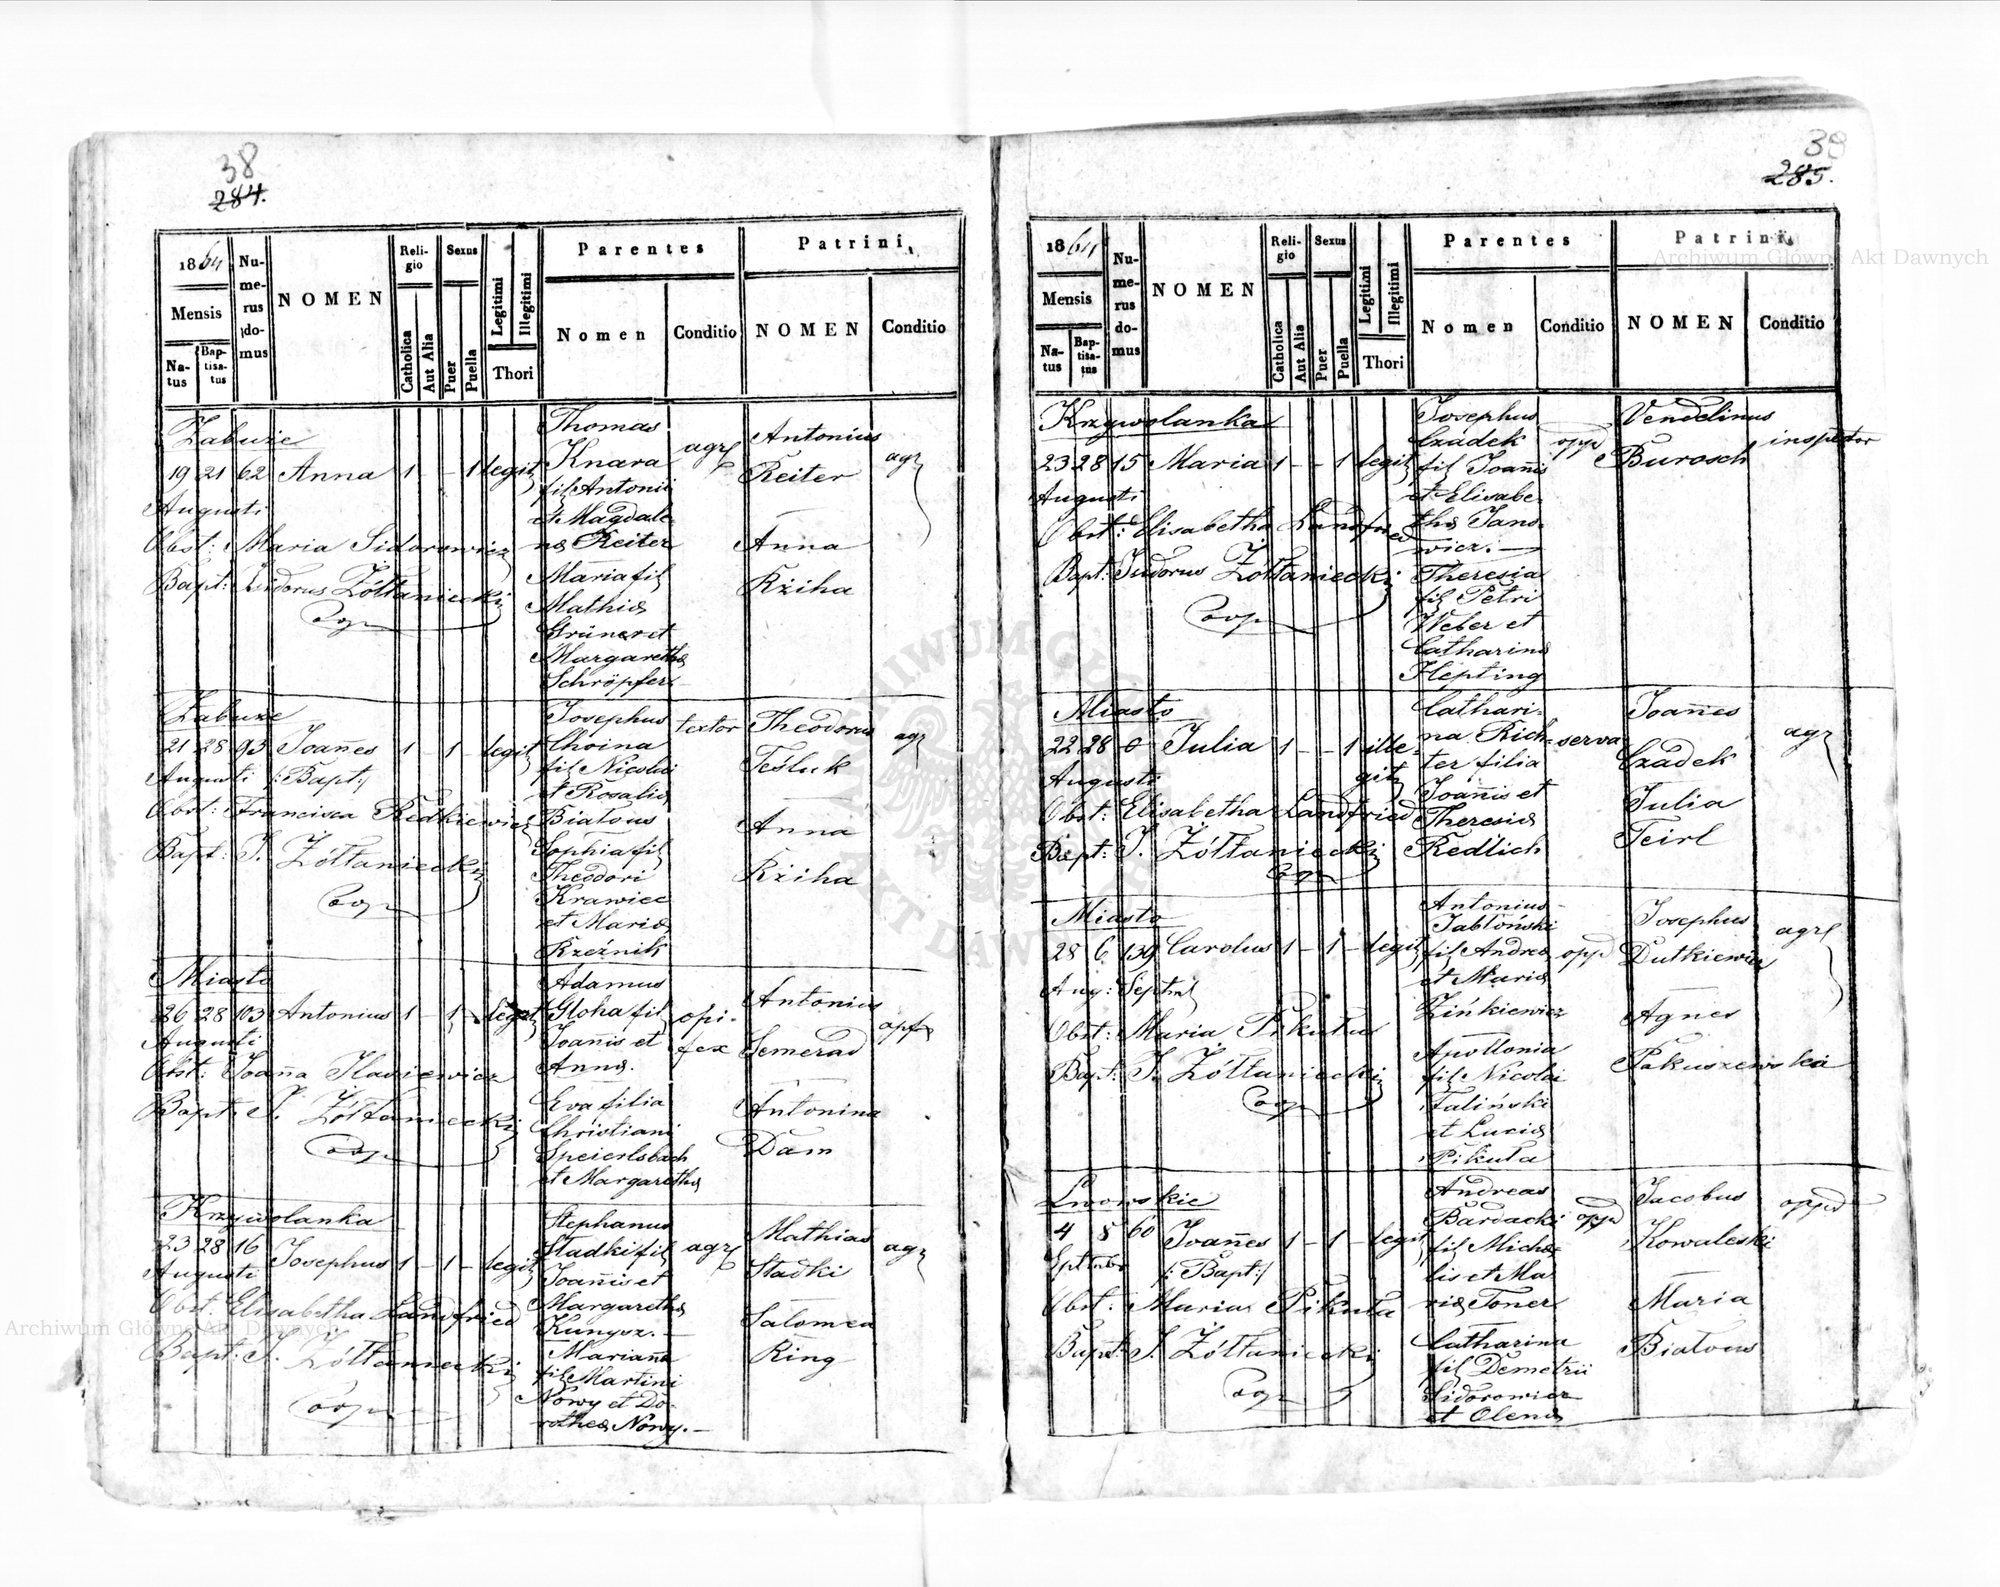 38
284.
1864
Mensis
Natus
Baptisatus
Numerus domus
NOMEN
Religio
Catholica
Aut Alia
Sexus
Puer
Puella
Legitimi
Illegitimi
Thori
Parentes
Nomen
Conditio
Patrini,
NOMEN
Conditio
Zabuże
19 21 62 Anna 1 – – 1 legit
Augusti
Obst: Maria Sidorowicz
Bapt: Isidorus Żółtaniecki
Coop
Thomas
Knara
fil Antonii
et Magdale
na Reiter
Maria fil
Mathia
Grüner et
Margaretha
Schröpfer
agr
Antonius
Reiter
Anna
Kžiha
agr
Zabuże
21 28 93 Joañes 1 – 1 – legit
Augusti /:Bapt:/
Obst: Francisca Redkiewicz
Bapt: I. Żółtaniecki
Coop
Josephus
Choina
fil Nicolai
et Rosalia
Białous
Sophia fil
Theodori
Krawiec
et Maria
Rzeźnik
textor
Theodorus
Teśluk
Anna
Kžiha
agr
Miasto
26 28 103 Antonius 1 – 1 – legit
Augusti
Obst: Joaña Ilasiewicz
Bapt: I. Żółtaniecki
Coop
Adamus
Gloha fil
Joañis et
Anna.
Eva filia
Christiani
Speierlsbach
et Margaretha
opi-
fex
Antonius
Semerad
Antonina
Dam
opf
Krzywolanka
23 28 16 Josephus 1 – 1 – legit
Augusti
Obst: Elisabetha Landfried
Bapt: I. Żółtaniecki
Coop
Stephanus
Stadki fil
Joañis et
Margaretha
Kunysz. –
Mariaña
fil Martini
Nowy et Do-
rothea Nowy. –
agr
Mathias
Stadki
Salomea
Ring
agr
285.
1864
Mensis
Natus
Baptisatus
Numerus domus
NOMEN
Religio
Catholica
Aut Alia
Sexus
Puer
Puella
Legitimi
Illegitimi
Thori
Parentes
Nomen
Conditio
Patrini,
NOMEN
Conditio
Krzywolanka
23 28 15 Maria 1 – – 1 legit
Augusti
Obst: Elisabetha Landfried
Bapt: Isidorus Żółtaniecki
Coop
Josephus
Czadek
fil Joañis
et Elisabe-
tha Jano-
wicz. –
Theresia
fil Petri
Weber et
Catharina
Hepting
opp
Vendelinus
Burosch
inspector
Miasto
22 28 0 Julia 1 – – 1 ille-
Augusti git
Obst: Elisabetha Landfried
Bapt: I. Żółtaniecki
Coop
Cathari-
na Rich-
ter filia
Joañis et
Theresia
Redlich
serva
Joañes
Czadek
Julia
Teirl
agr
Miasto
28 6 139 Carolus 1 – 1 – legit
Aug: Septm
Obst: Maria Pikuta
Bapt: I. Żółtaniecki
Coop
Antonius
Jabłoński
fil Andrea
et Maria
Zińkiewicz
Apollonia
fil Nicolai
Faliński
et Lucia
Pikuta
opp
Josephus
Dutkiewicz
Agnes
Pakuszewska
agr
Lwowskie
4 8 60 Joañes 1 – 1 – legit
/: Bapt:/
Obst: Maria Pikuta
Bapt: I. Żółtaniecki
Coop
Andreas
Bardacki
fil Micha-
lis et Ma
ria Toner
Catharina
fil Demetrii
Sidorowicz
et Olena
opp
Jacobus
Kowaleski
Maria
Białous
oppd
Archiwum Główne Akt Dawnych
Archiwum Główne Akt Dawnych
ARCHIWUM GŁÓWNE AKT DAWNYCH